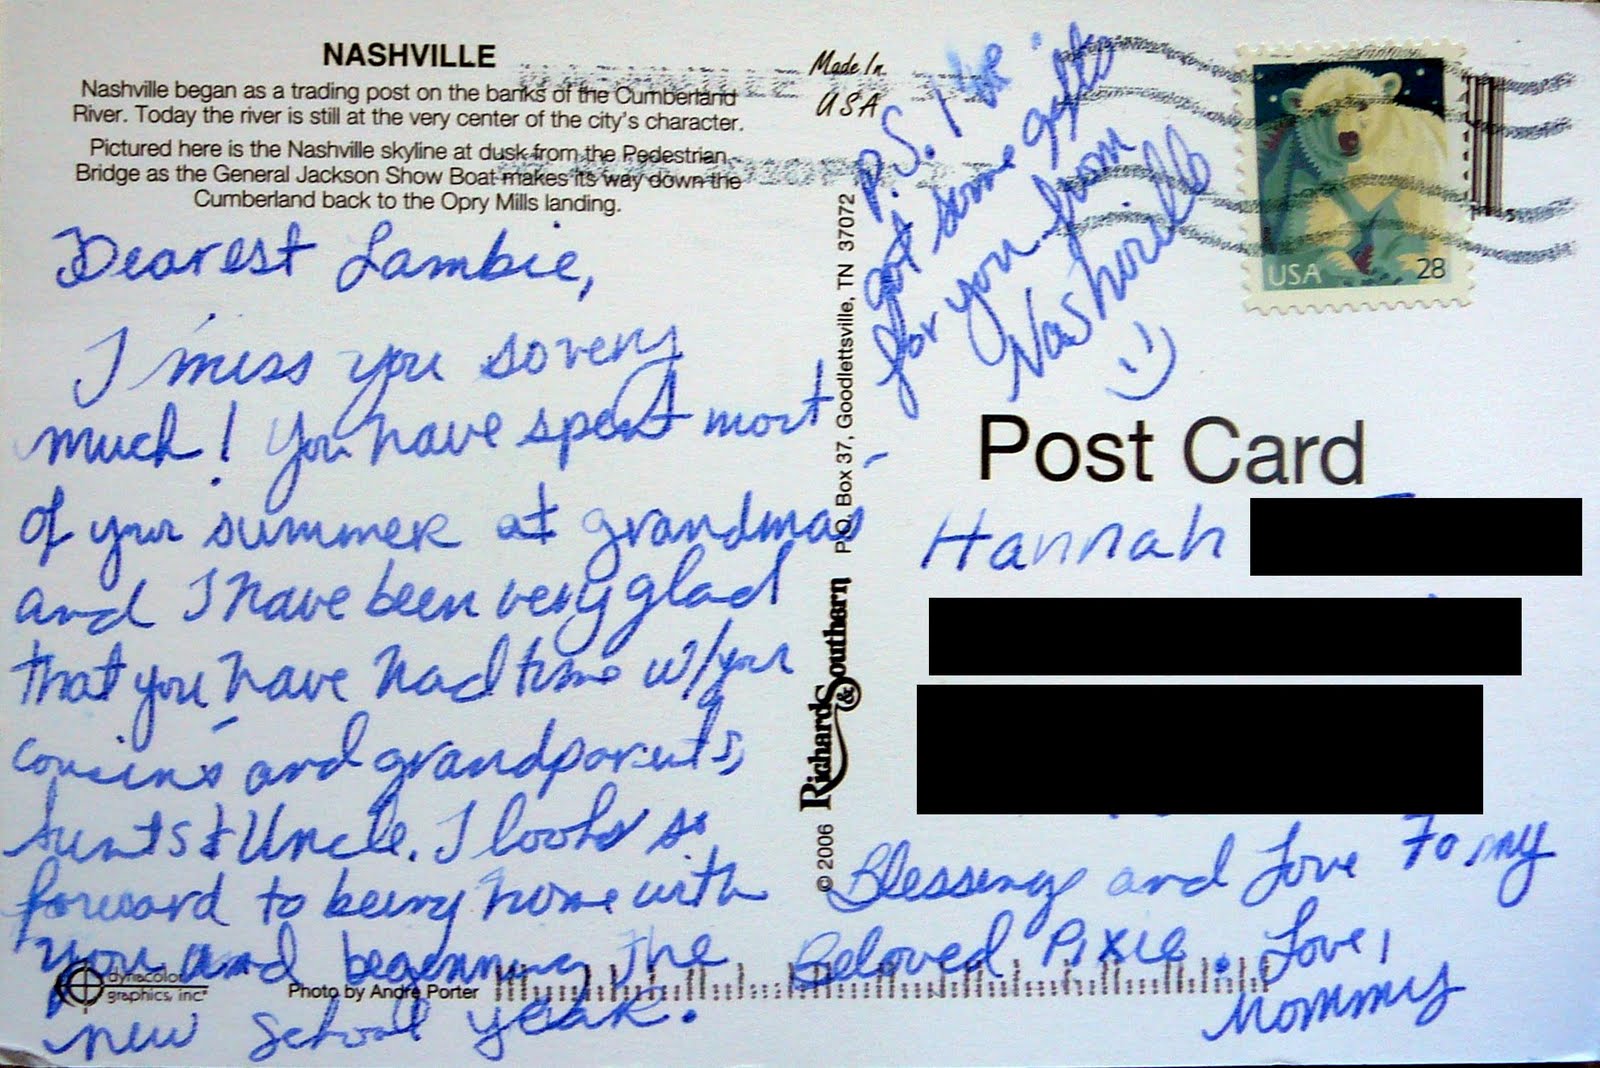 NASHVILLE
Nashville began as a trading post on the banks of the Cumberland
River. Today the river is still at the very center of the city's character.
Pictured here is the Nashville skyline at dusk from the Pedestrian
Bridge as the General Jackson Show Boat makes its way down the
Cumberland back to the Opry Mills landing.
Dearest Lambie,
I miss you so very
much! You have spent most
of your summer at grandmas
and I have been very glad
that you have had time w/your
cousins and grandparents,
Aunts & Uncle. I look so
forward to being home with
you and beginning the
new school year.
dynacolor
graphics, inc.
Photo by Andre Porter
Made In
USA
© 2006 Richards & Southern P.O. Box 37, Goodlettsville, TN 37072
P.S. I've
got some gifts
for you from
Nashville
USA 28
Post Card
Hannah
Blessings and Love to my
Beloved Pixie. Love,
Mommy